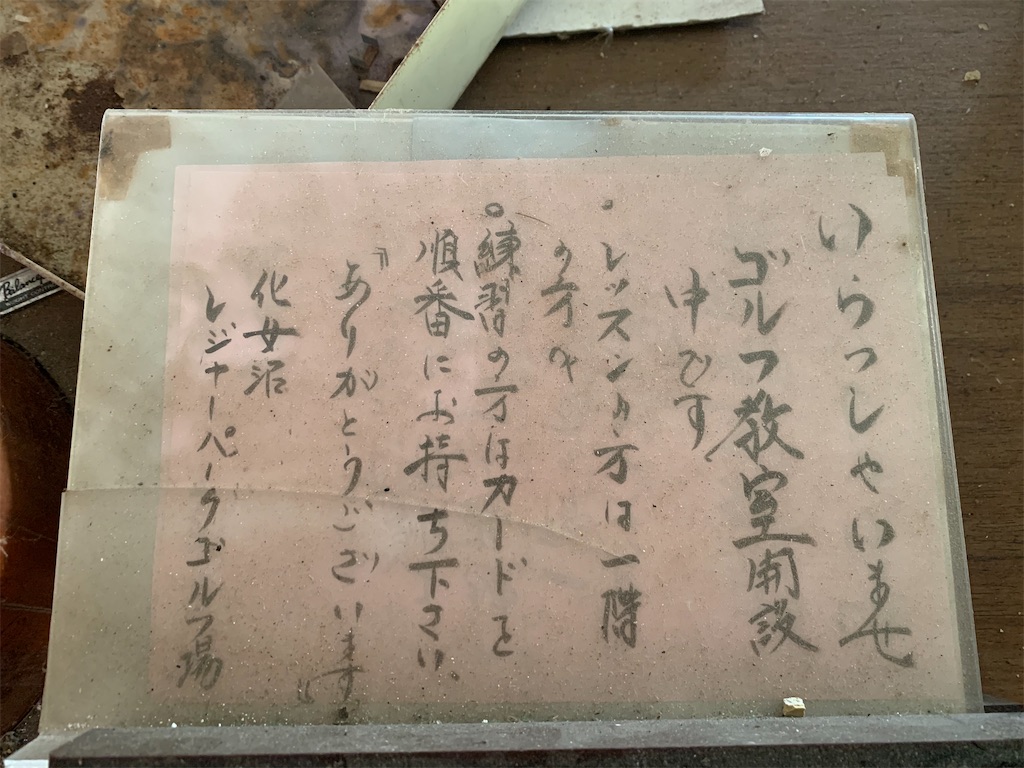 いらっしゃいませ
ゴルフ教室開設
中です
・レッスンの方は一階
の方へ
○練習の方はカードを
順番にお持ち下さい
"ありがとうございます"
化女沼
レジャーパークゴルフ場
Balance